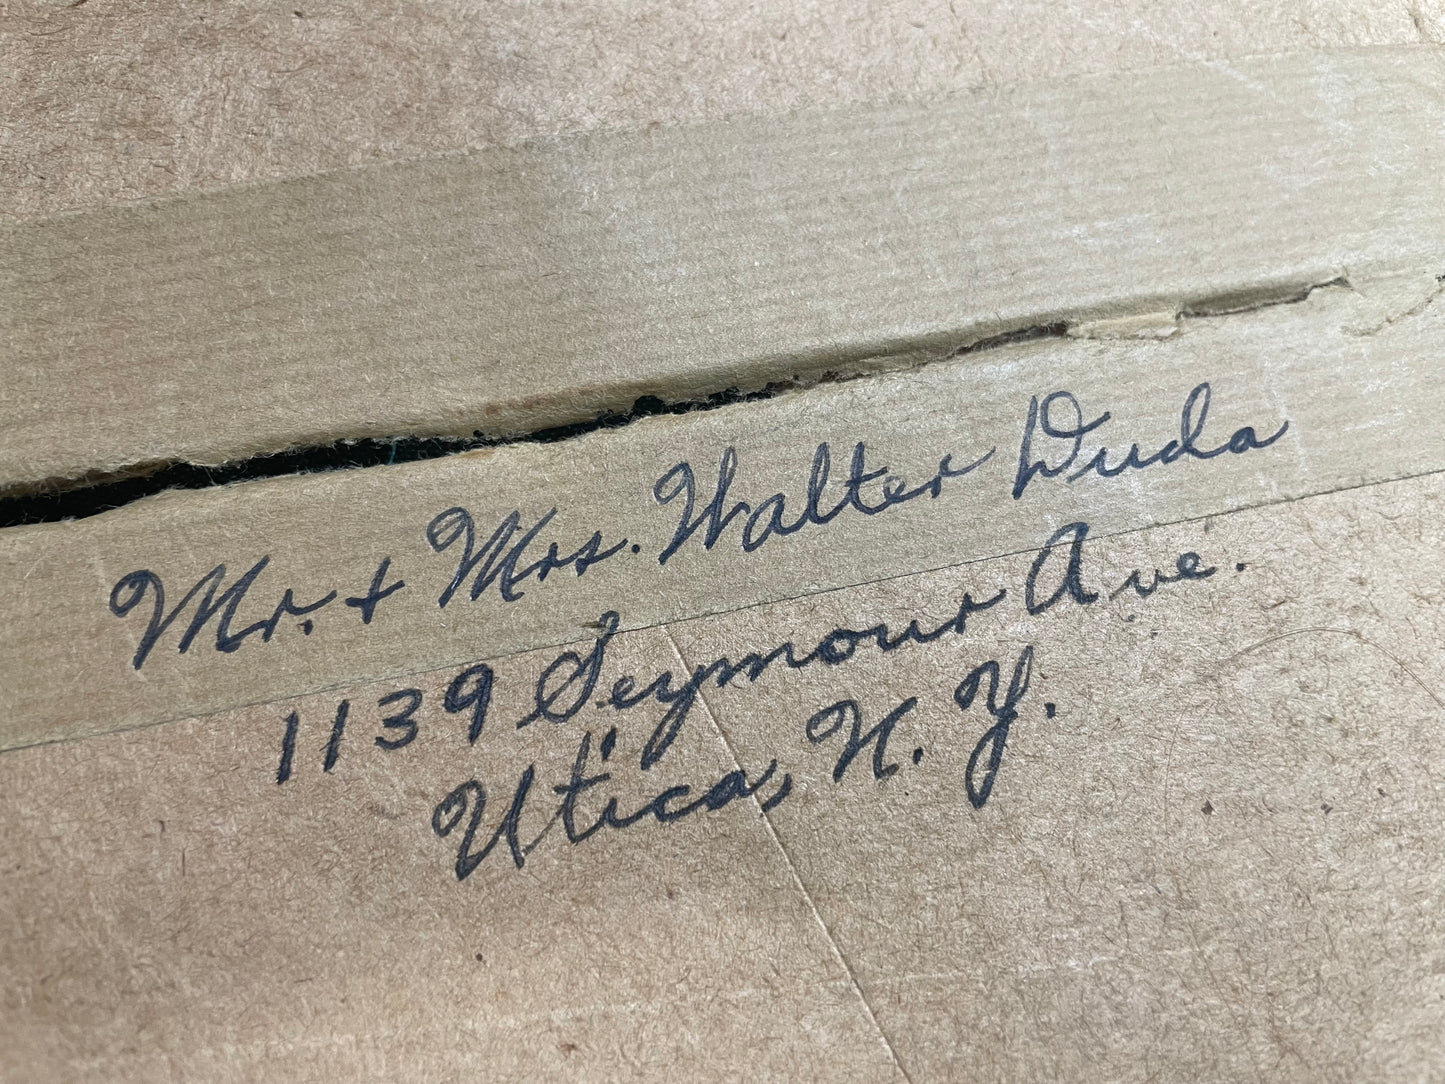 Mr. + Mrs. Walter Duda
1139 Seymour Ave.
Utica, N. Y.